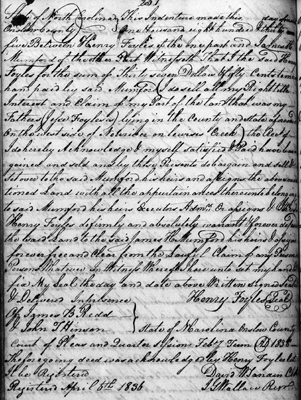 State of North Carolina This Indenture made this day of
Onslow County One thousand eight hundred & thirty
five Between Henry Foyles of the one part and
Mumford of the other Part Witnesseth That I the said Henry
Foyles for the sum of Thirty seven Dollars & fifty Cents to me in
hand paid by said Mumford do sell all my Right title
Interest and Claim of my Part of the land that was my
Fathers lying in the County and State aforesaid
On the west side of on Creek the Rec't of
Is hereby Acknowledged myself satisfied & Paid have bar
gained and sold and by these Presents do bargain and sell &
Set over to the said Mumford his heirs and assigns the above men
tioned Land with all the appurtainances thereunto belonging
to said Mumford his heirs Executors Adm'rs Or assigns
Henry Foyles do firmly and absolutely warrant & forever defend
the said land to the said James Mumford his heirs & assigns
forever free and Clear from the lawful Claim of any Person or
Persons Whatever In Witness Whereof I have unto set my hand &
fix'd My Seal the day and date above Written Signed seal'd
& Delivered In presence Henry Foyles Seal
Of James B. Redd
John T. Hinson State of N. Carolina Onslow County
Court of Pleas and Quarter Session Feb'y Term 1836
The foregoing deed was acknowledged by Henry Foyles
to be Registered David W. Sanders Clk
Registered April 5th 1836 J. Wallace Reg'r